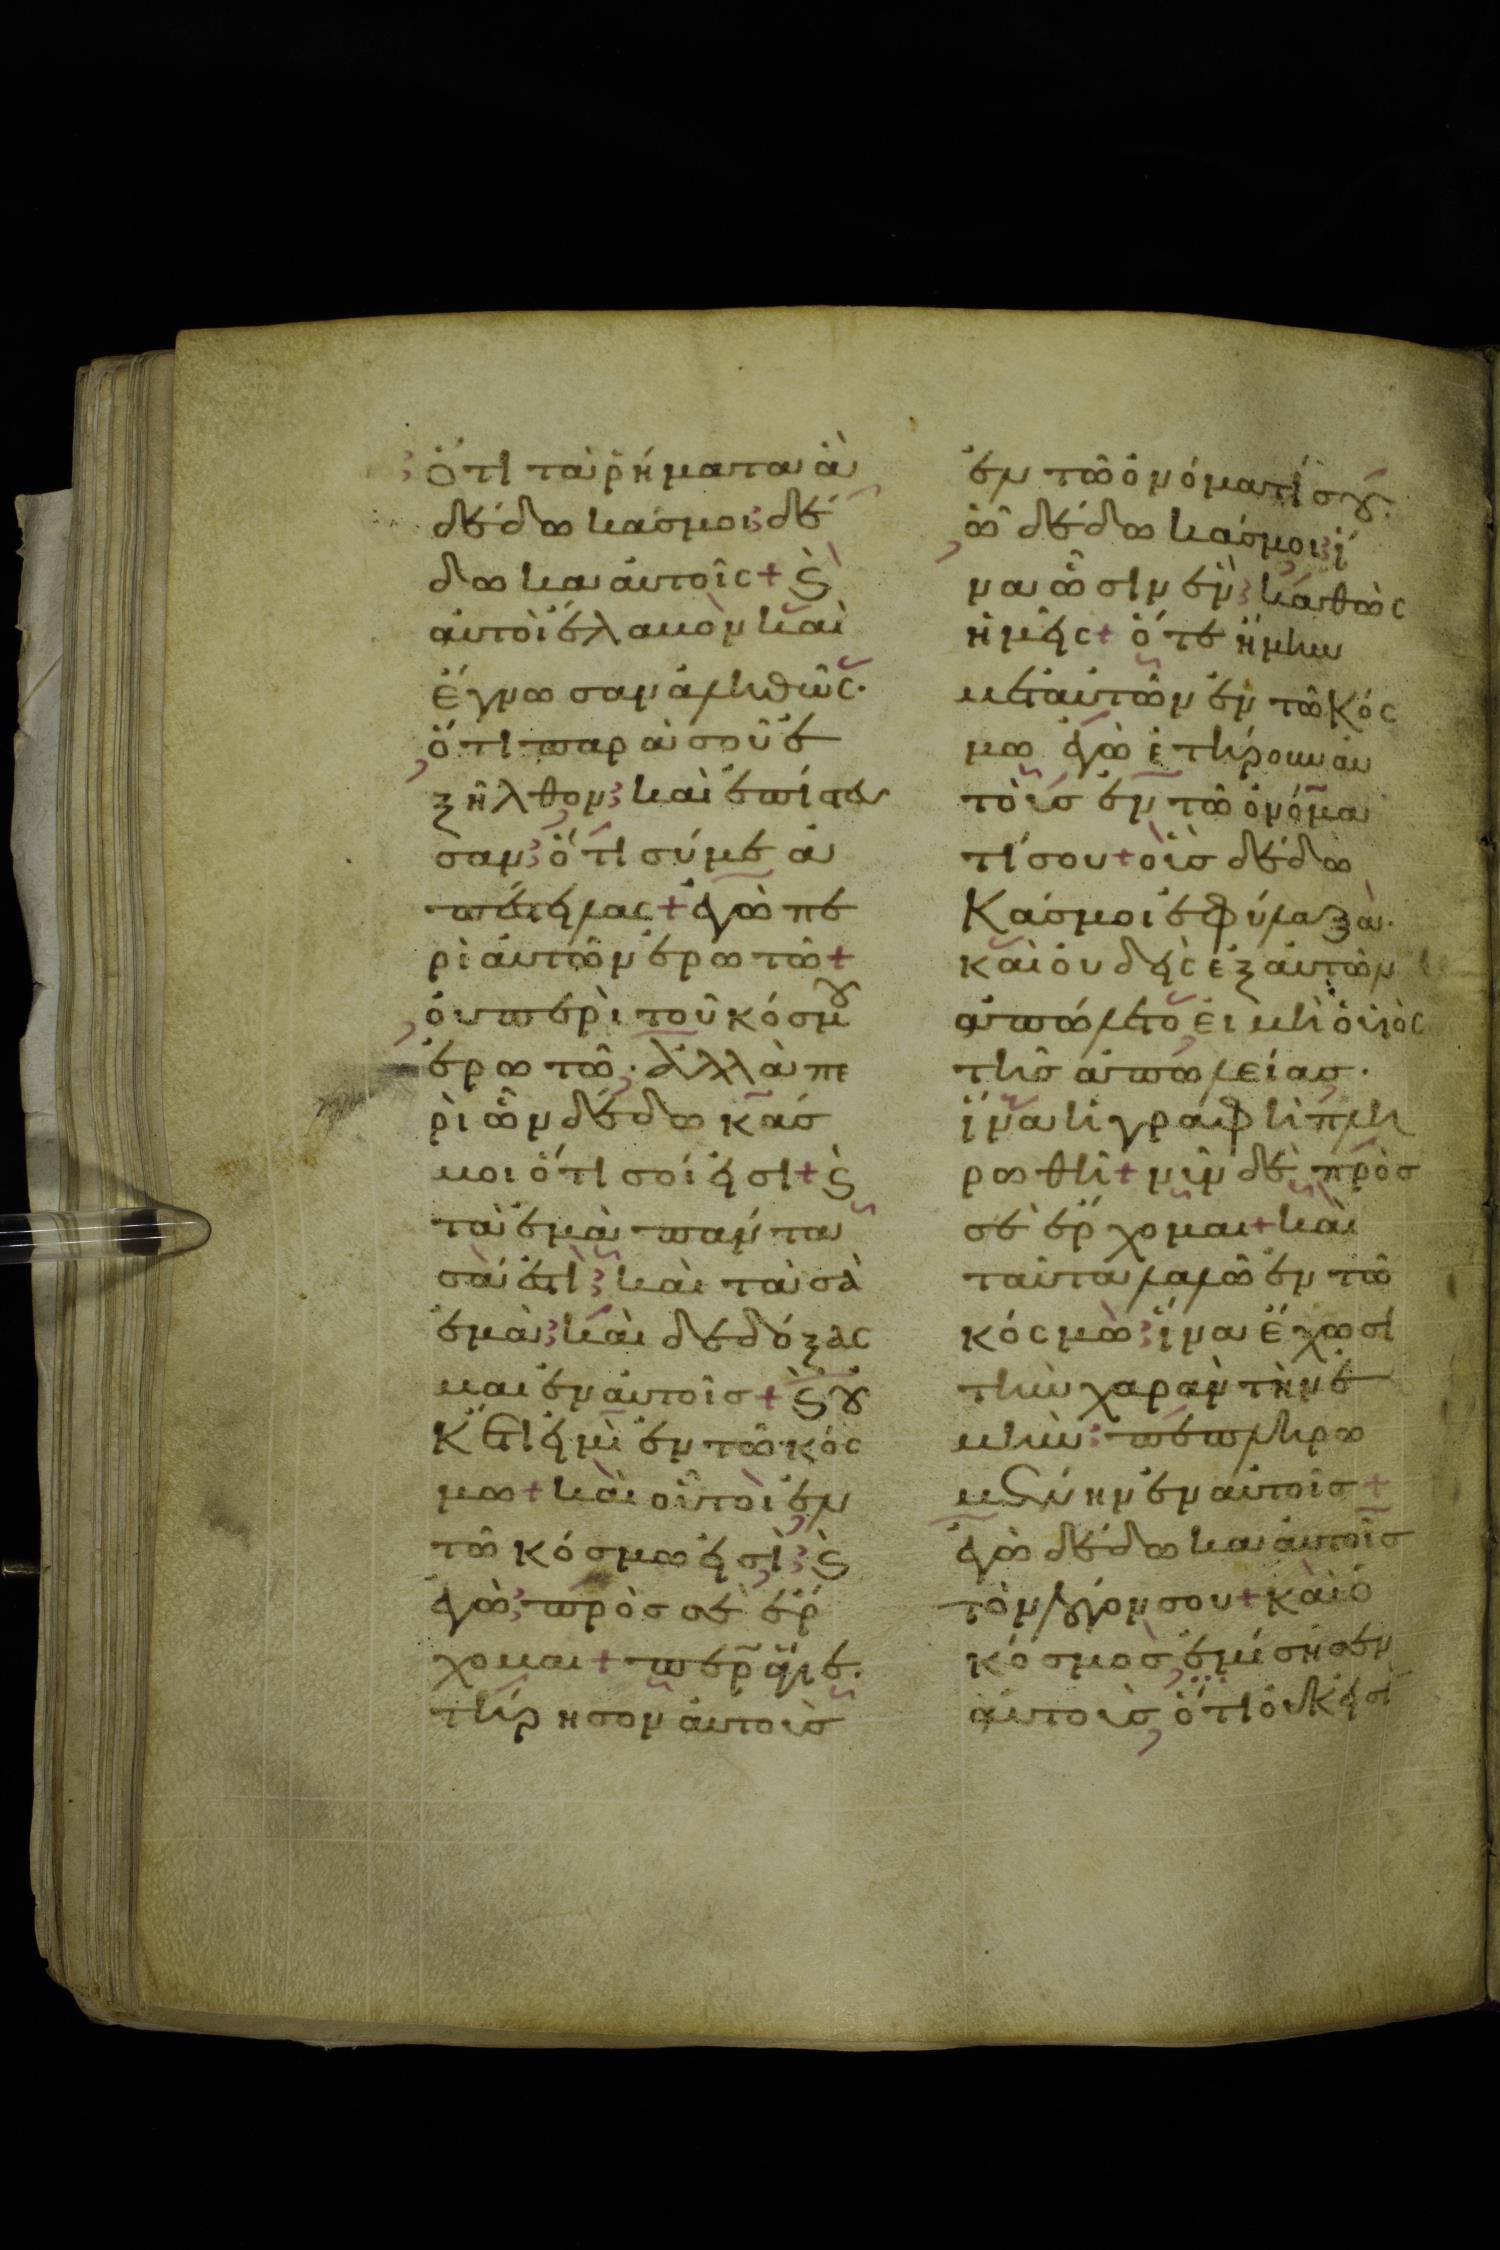 ὅτι τὰ ῥήματα ἃ
δέδωκάσ μοι δέ
δωκα αὐτοῖς + ϗ
αὐτοὶ ἔλαβον καὶ
ἔγνωσαν ἀληθῶς·
ὅτι παρὰ σοῦ ἐ
ξῆλθον καὶ ἐπίστευ
σαν ὅτι σύ με ἀ
πέστειλας + ἐγὼ πε
ρὶ αὐτῶν ἐρωτῶ +
οὐ περὶ τοῦ κόσμου
ἐρωτῶ· ἀλλὰ πε
ρὶ ὧν δέδωκάσ
μοι ὅτι σοί εἰσι + ϗ
τὰ ἐμὰ πάντα
σά ἐστὶ καὶ τὰ σὰ
ἐμὰ καὶ δεδόξας
μαι ἐν αὐτοῖσ + ϗ οὐ
κέτι εἰμὶ ἐν τῶ κός
μω + καὶ οὗτοι ἐν
τῶ κόσμω εἰσὶ ϗ
ἐγὼ πρὸσ σὲ ἔρ
χομαι + περ ἅγιε·
τήρησον αὐτοὺσ
ἐν τῶ ὀνόματί σου
ὧ δέδωκάσ μοι ἵ
να ὦσιν ἓν καθὼς
ἡμεῖς + ὅτε ἤμην
μετ αὐτῶν ἐν τῶ κός
μω ἐγὼ ἐτήρουν αὐ
τοὺσ ἐν τῶ ὀνόμα
τί σου + οὓσ δέδω
κάσ μοι ἐφύλαξα·
καὶ οὐδεὶς ἐξ αὐτῶν
ἀπώλετο εἰ μὴ ὁ υἱὸς
τῆσ ἀπωλείασ·
ἵνα ἡ γραφὴ πλη
ρωθῆ + νῦν δὲ πρὸσ
σὲ ἔρχομαι + καὶ
ταῦτα λαλῶ ἐν τῶ
κόςμω ἵνα ἔχωσι
τὴν χαρὰν τὴν ἐ
μὴν πεπληρω
μένην ἐν αὐτοῖσ +
ἐγὼ δέδωκα αὐτοῖσ
τὸν λόγον σου + καὶ ὁ
κόσμοσ ἐμίσησεν
αὐτοὺσ ὅτι οὐκ εἰσὶ